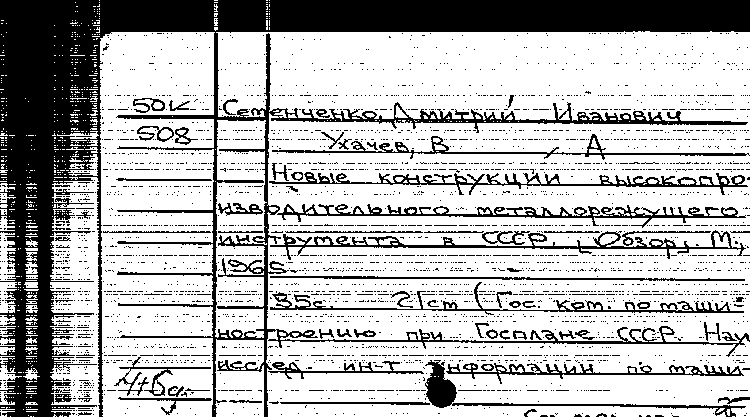 50к Семенченко, Дмитрий Иванович
508 Ухачев, В А
Новые конструкции высокопро-
изводительного металлорежущего
инструмента в СССР. [Обзор]. М.,
1965.
35с. 21см (Гос. ком. по маши-
ностроению при Госплане СССР. Науч
исслед. ин-т информации по маши-